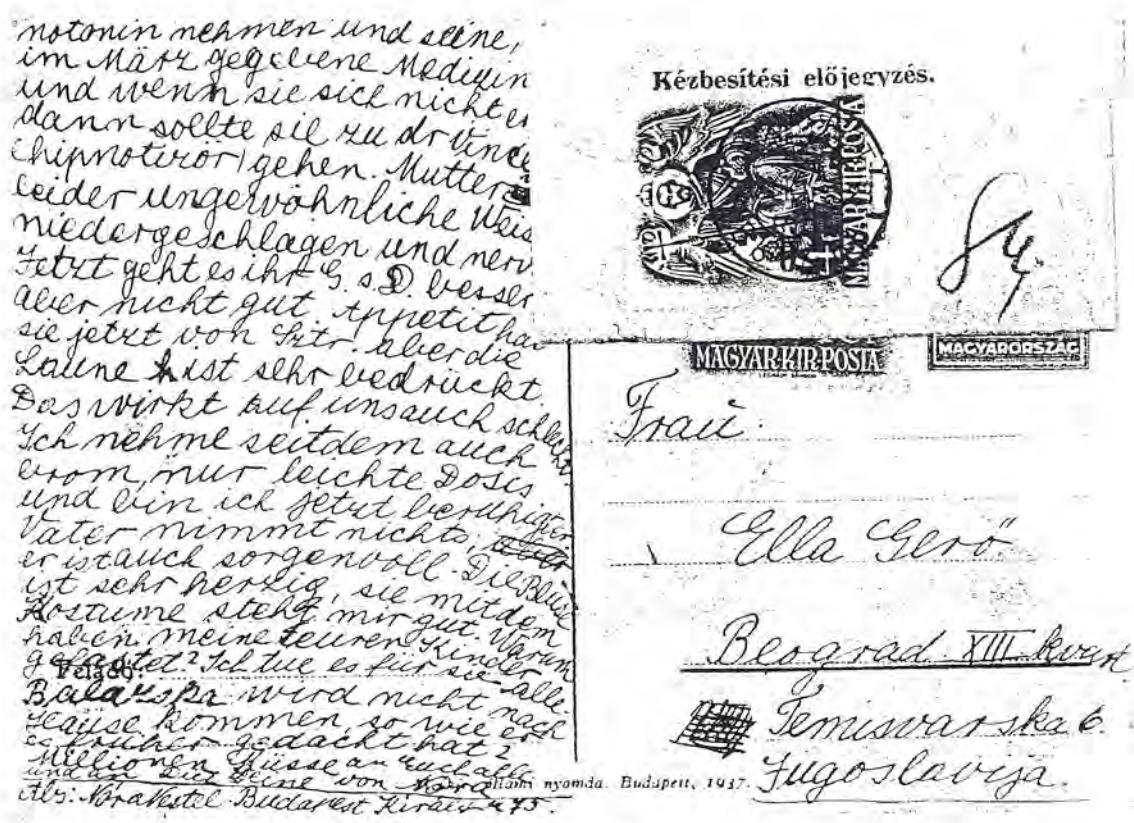 notonin nehmen und seine,
im März gegebene Medizin
und wenn sie sich nicht er
dann sollte sie zu dr Vince
(hipnotizör) gehen. Mutter
leider ungewöhnliche Weis
niedergeschlagen und nerv
Jetzt geht es ihr G. s. D. besser
aber nicht gut. Appetit ha
sie jetzt von Sztr. aber die
Laune ist sehr bedrückt.
Das wirkt auf uns auch schlecht.
Ich nehme seitdem auch
brom, nur leichte Dosis
und bin ich jetzt beruhigter.
Vater nimmt nichts,
er ist auch sorgenvoll. Die Bluse
ist sehr herzig, sie mit dem
Kostüme steht mir gut. Warum
haben meine teuren Kinder
gefastet? Ich tue es für sie alle
Feladó:
wird nicht nach
Hause kommen, so wie er
es früher gedacht hat?
Millionen Küsse an Euch alle
und an Dich Deine von Nóra
Abs: Nóra Budapest Király u 75.
Kézbesítési előjegyzés.
MAGYAR KIR. POSTA
MAGYAR KIR. POSTA
MAGYARORSZÁG
Frau
Ella Gerő
Beograd XIII kvart
Temisvarska 6.
Jugoslavija.
állami nyomda. Budapest, 1937.